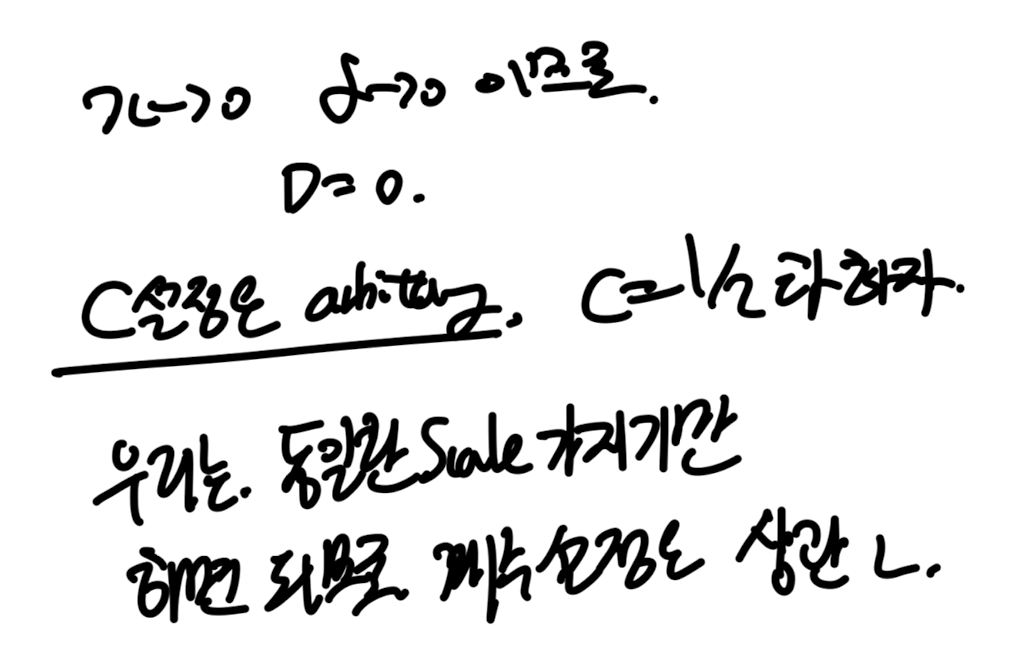 x→0 δ→0 이므로.
D=0.
C설정은 arbitrary. C=1/2라 하자.
우리는. 동일한 Scale 가지기만
하면 되므로 계수설정은 상관 ㄴ.